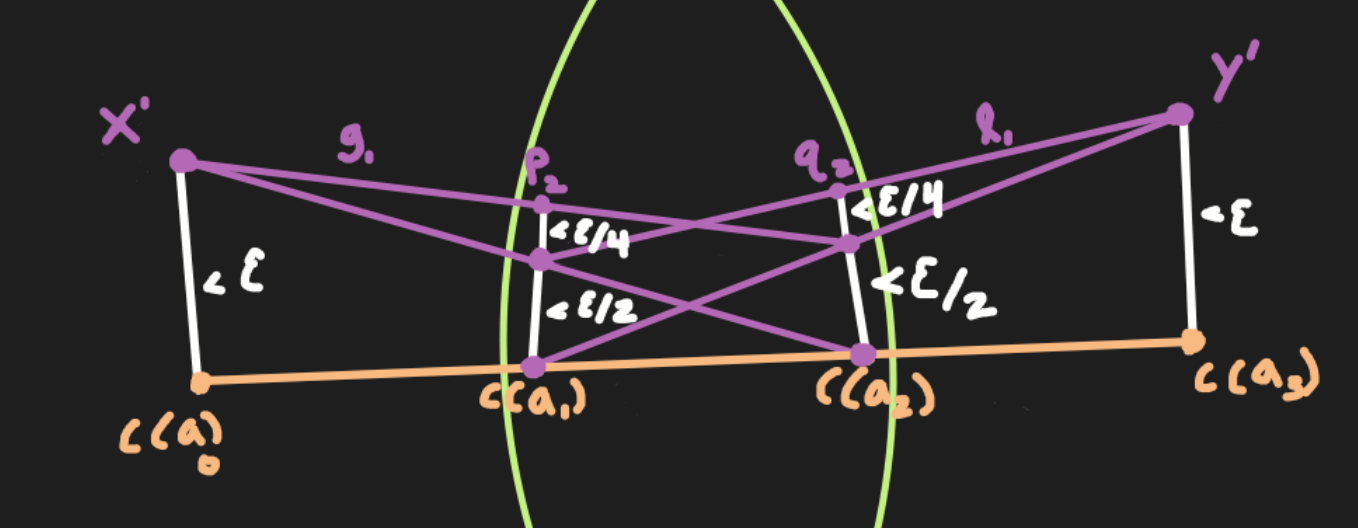 x'
y'
g₁
p₂
q₂
l₁
< ε
< ε/4
< ε/2
< ε/4
< ε/2
< ε
c(a₀)
c(a₁)
c(a₂)
c(a₃)